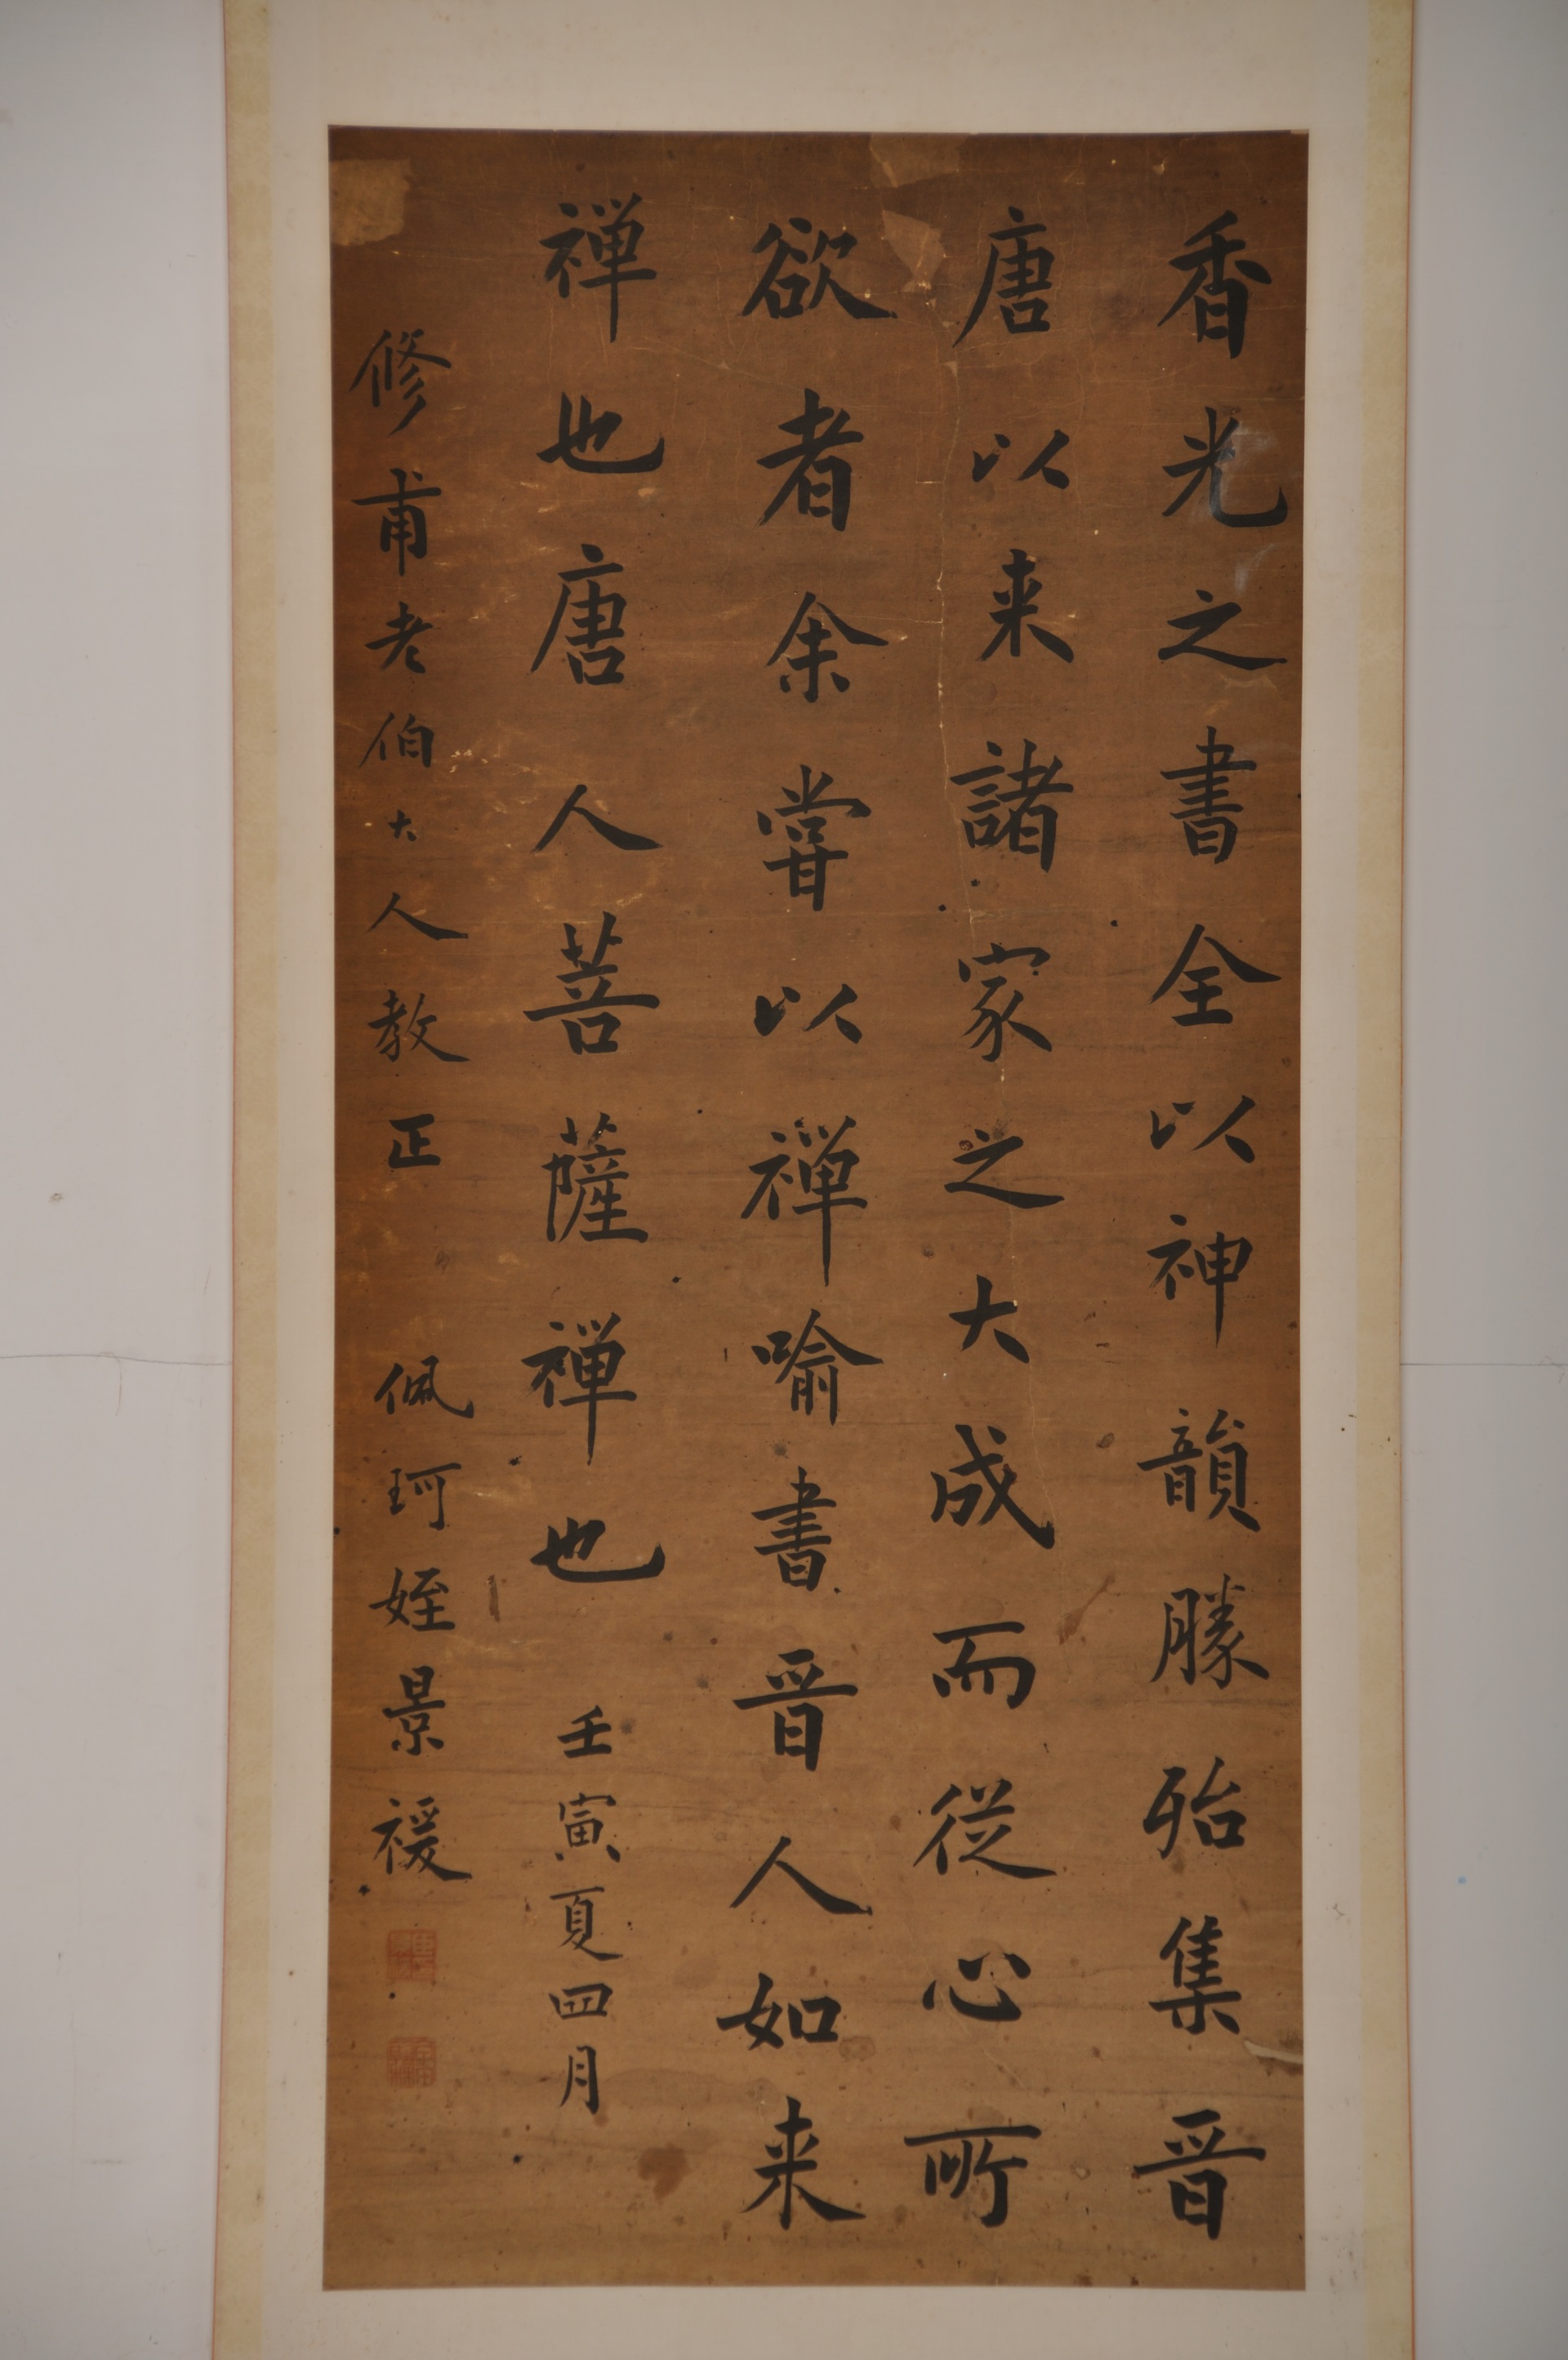 香光之書全以神韻勝殆集晉
唐以来諸家之大成而從心所
欲者余嘗以禅喻書晉人如来
禅也唐人菩薩禅也 壬寅夏四月
修甫老伯大人教正 佩珂姪景禐